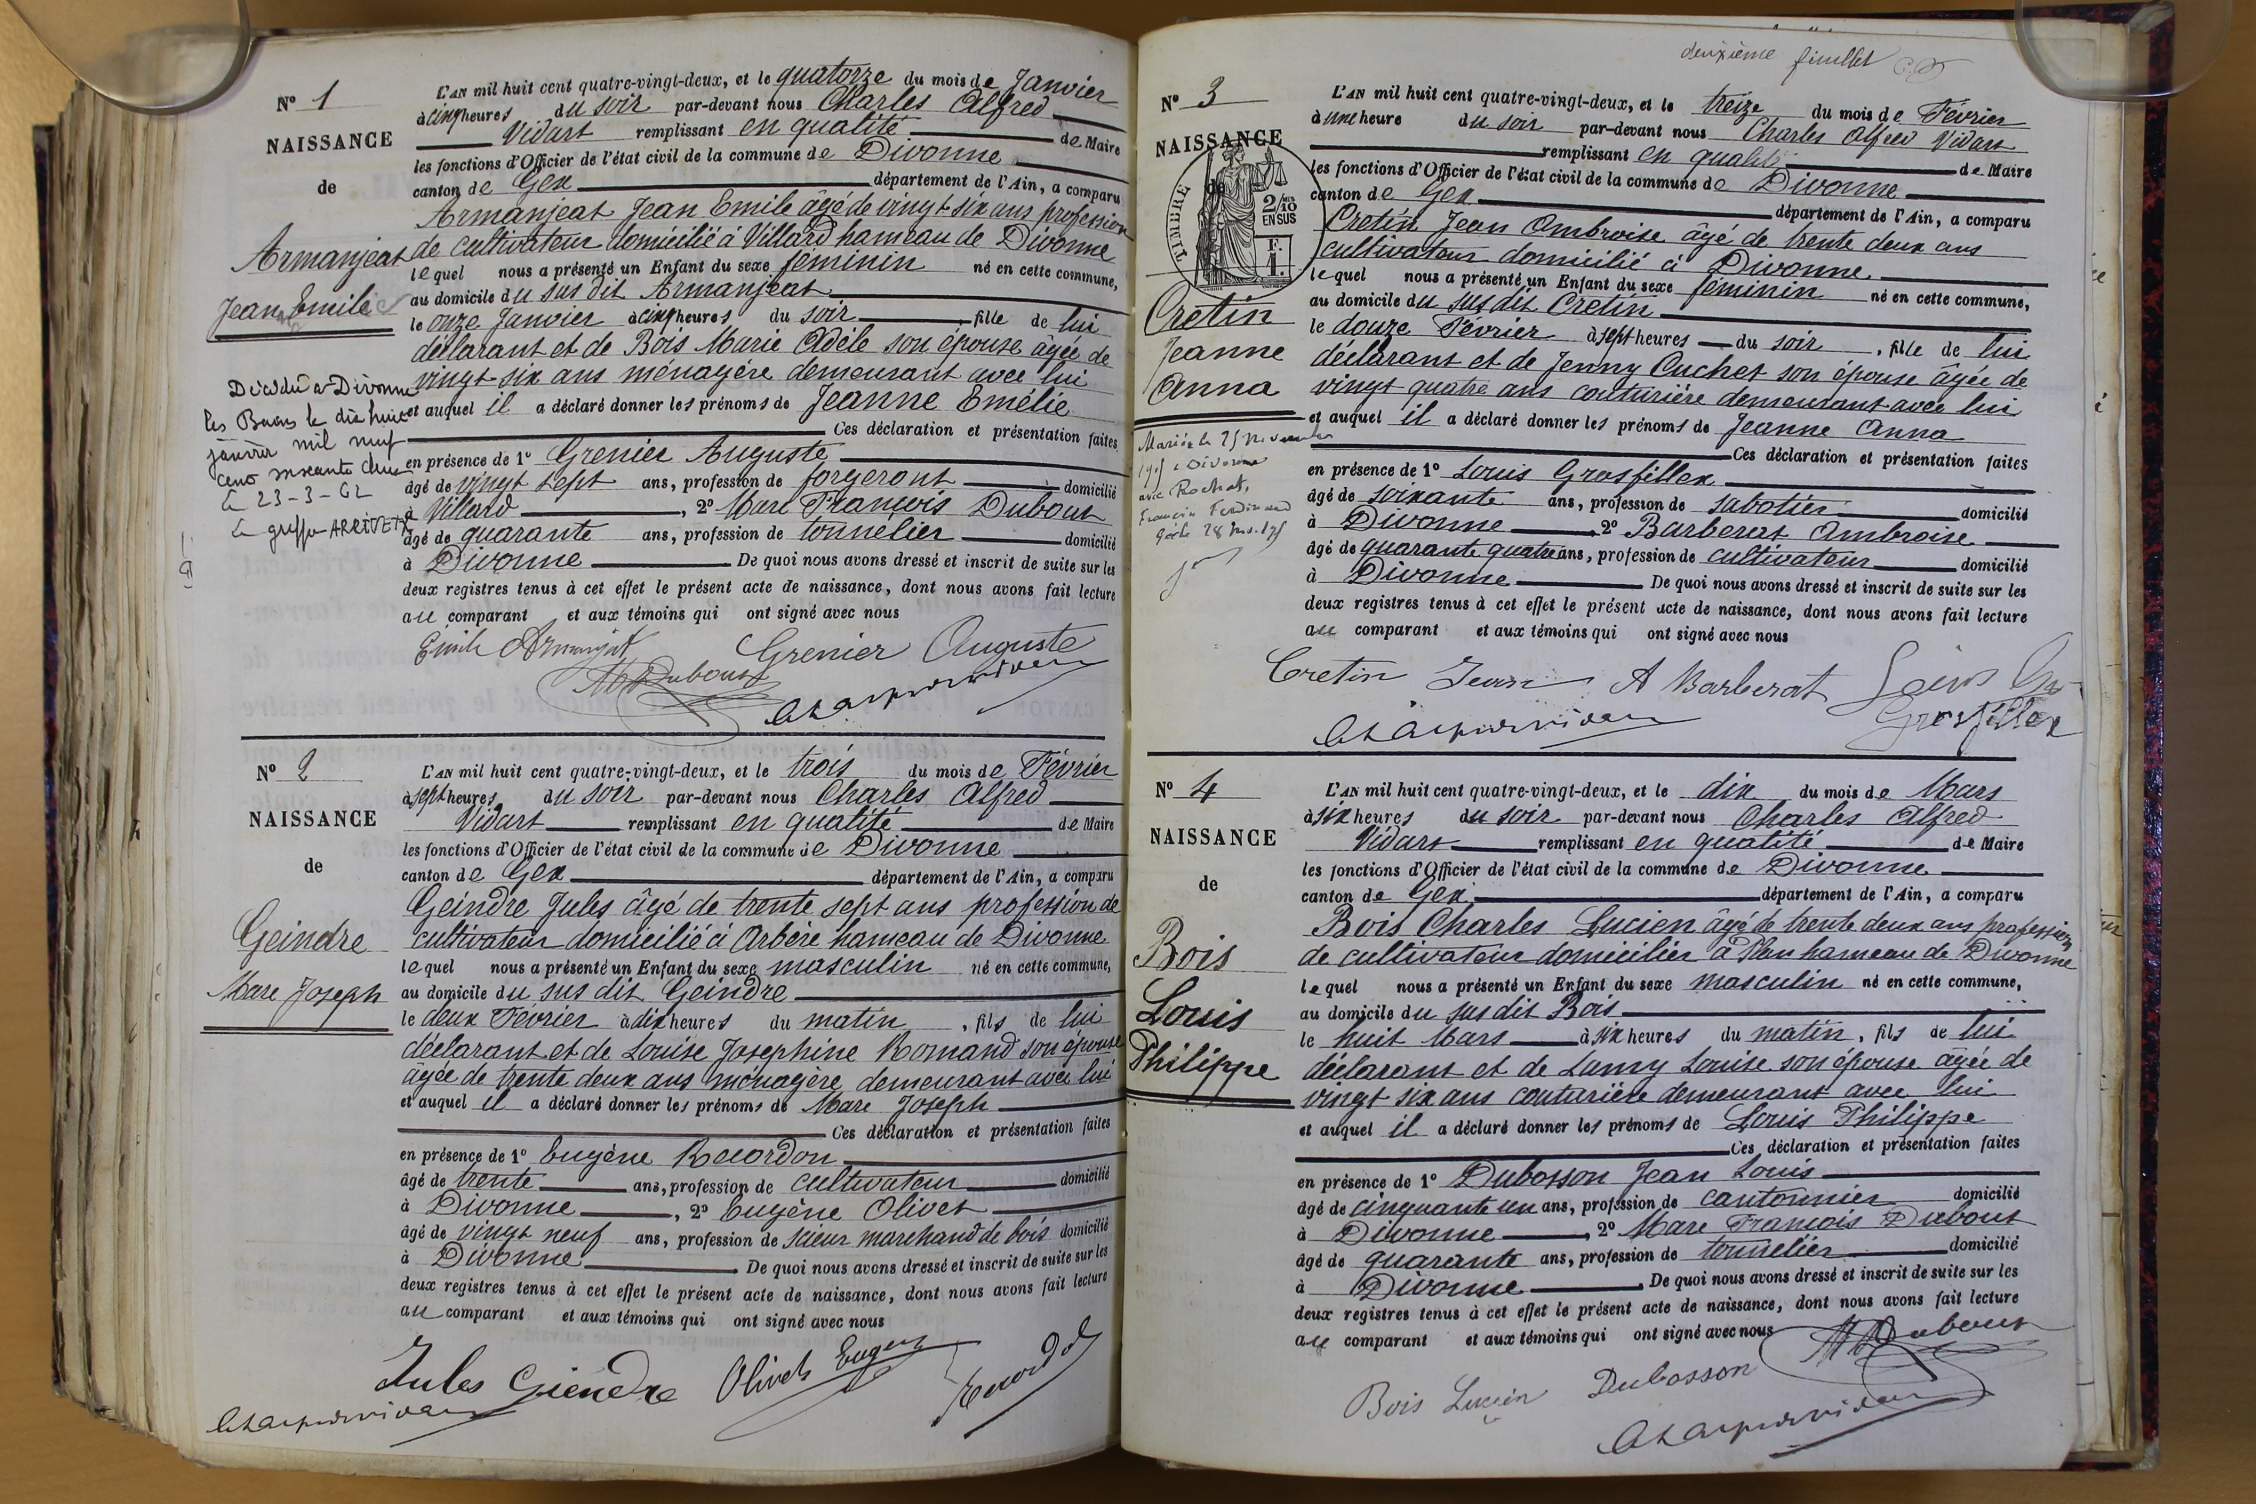 N° 1
NAISSANCE
de
Armanjeat
Jean Emilie
Décédée à Divonne
les Bains le dix huit
janvier mil neuf
cent soixante deux
le 23-3-62
L'AN mil huit cent quatre-vingt-deux, et le quatorze du mois de Janvier
à cinq heures du soir par-devant nous Charles Alfred
Vidart remplissant en qualité de Maire
les fonctions d'Officier de l'état civil de la commune de Divonne
canton de Gex département de l'Ain, a comparu
Armanjeat Jean Emile âgé de vingt-six ans profession
de cultivateur domicilié à Villard hameau de Divonne
lequel nous a présenté un Enfant du sexe féminin né en cette commune,
au domicile du sus dit Armanjeat
le onze Janvier à cinq heures du soir, fille de lui
déclarant et de Bois Marie Adèle son épouse âgée de
vingt-six ans ménagère demeurant avec lui
et auquel il a déclaré donner les prénoms de Jeanne Emélie
Ces déclaration et présentation faites
en présence de 1° Grenier Auguste
âgé de vingt sept ans, profession de forgeront domicilié
à Villard, 2° Marc François Dubout
âgé de quarante ans, profession de tonnelier domicilié
à Divonne De quoi nous avons dressé et inscrit de suite sur les
deux registres tenus à cet effet le présent acte de naissance, dont nous avons fait lecture
au comparant et aux témoins qui ont signé avec nous
Emile Armanjeat Grenier Auguste
Dubout
N° 2
NAISSANCE
de
Geindre
Marc Joseph
L'AN mil huit cent quatre-vingt-deux, et le trois du mois de Février
à sept heures du soir par-devant nous Charles Alfred
Vidart remplissant en qualité de Maire
les fonctions d'Officier de l'état civil de la commune de Divonne
canton de Gex département de l'Ain, a comparu
Geindre Jules âgé de trente sept ans profession de
cultivateur domicilié à Arbère hameau de Divonne
lequel nous a présenté un Enfant du sexe masculin né en cette commune,
au domicile du sus dit Geindre
le deux Février à dix heures du matin, fils de lui
déclarant et de Louise Josephine Romand son épouse
âgée de trente deux ans ménagère demeurant avec lui
et auquel il a déclaré donner les prénoms de Marc Joseph
Ces déclaration et présentation faites
en présence de 1° Eugène Recordon
âgé de trente ans, profession de cultivateur domicilié
à Divonne, 2° Eugène Olivet
âgé de vingt neuf ans, profession de scieur marchand de bois domicilié
à Divonne. De quoi nous avons dressé et inscrit de suite sur les
deux registres tenus à cet effet le présent acte de naissance, dont nous avons fait lecture
au comparant et aux témoins qui ont signé avec nous
Jules Giendre Olivet Eugene Recordon
deuxième feuillet
N° 3
NAISSANCE
de
TIMBRE
2/10 EN SUS
Cretin
Jeanne
Anna
Mariée le 25 novembre
1905 à Divonne
avec Rochat,
François Ferdinand
L'AN mil huit cent quatre-vingt-deux, et le treize du mois de Février
à une heure du soir par-devant nous Charles Alfred Vidart
remplissant en qualité de Maire
les fonctions d'Officier de l'état civil de la commune de Divonne
canton de Gex département de l'Ain, a comparu
Cretin Jean Ambroise âgé de trente deux ans
cultivateur domicilié à Divonne
lequel nous a présenté un Enfant du sexe féminin né en cette commune,
au domicile du sus dit Cretin
le douze Février à sept heures du soir, fille de lui
déclarant et de Jenny Cuchet son épouse âgée de
vingt quatre ans couturière demeurant avec lui
et auquel il a déclaré donner les prénoms de Jeanne Anna
Ces déclaration et présentation faites
en présence de 1° Louis Grosfillex
âgé de soixante ans, profession de sabotier domicilié
à Divonne, 2° Barberat Ambroise
âgé de quarante quatre ans, profession de cultivateur domicilié
à Divonne De quoi nous avons dressé et inscrit de suite sur les
deux registres tenus à cet effet le présent acte de naissance, dont nous avons fait lecture
au comparant et aux témoins qui ont signé avec nous
Cretin Jean A Barberat Louis
Grosfillex
N° 4
NAISSANCE
de
Bois
Louis
Philippe
L'AN mil huit cent quatre-vingt-deux, et le dix du mois de Mars
à six heures du soir par-devant nous Charles Alfred
Vidart remplissant en qualité de Maire
les fonctions d'Officier de l'état civil de la commune de Divonne
canton de Gex département de l'Ain, a comparu
Bois Charles Lucien âgé de trente deux ans profession
de cultivateur domicilier à Plan hameau de Divonne
lequel nous a présenté un Enfant du sexe masculin né en cette commune,
au domicile du sus dit Bois
le huit Mars à six heures du matin, fils de lui
déclarant et de Lamy Louise son épouse âgée de
vingt six ans couturière demeurant avec lui
et auquel il a déclaré donner les prénoms de Louis Philippe
Ces déclaration et présentation faites
en présence de 1° Dubosson Jean Louis
âgé de cinquante un ans, profession de cantonnier domicilié
à Divonne, 2° Marc François Dubout
âgé de quarante ans, profession de tonnelier domicilié
à Divonne. De quoi nous avons dressé et inscrit de suite sur les
deux registres tenus à cet effet le présent acte de naissance, dont nous avons fait lecture
au comparant et aux témoins qui ont signé avec nous
Dubout
Bois Lucien Dubosson